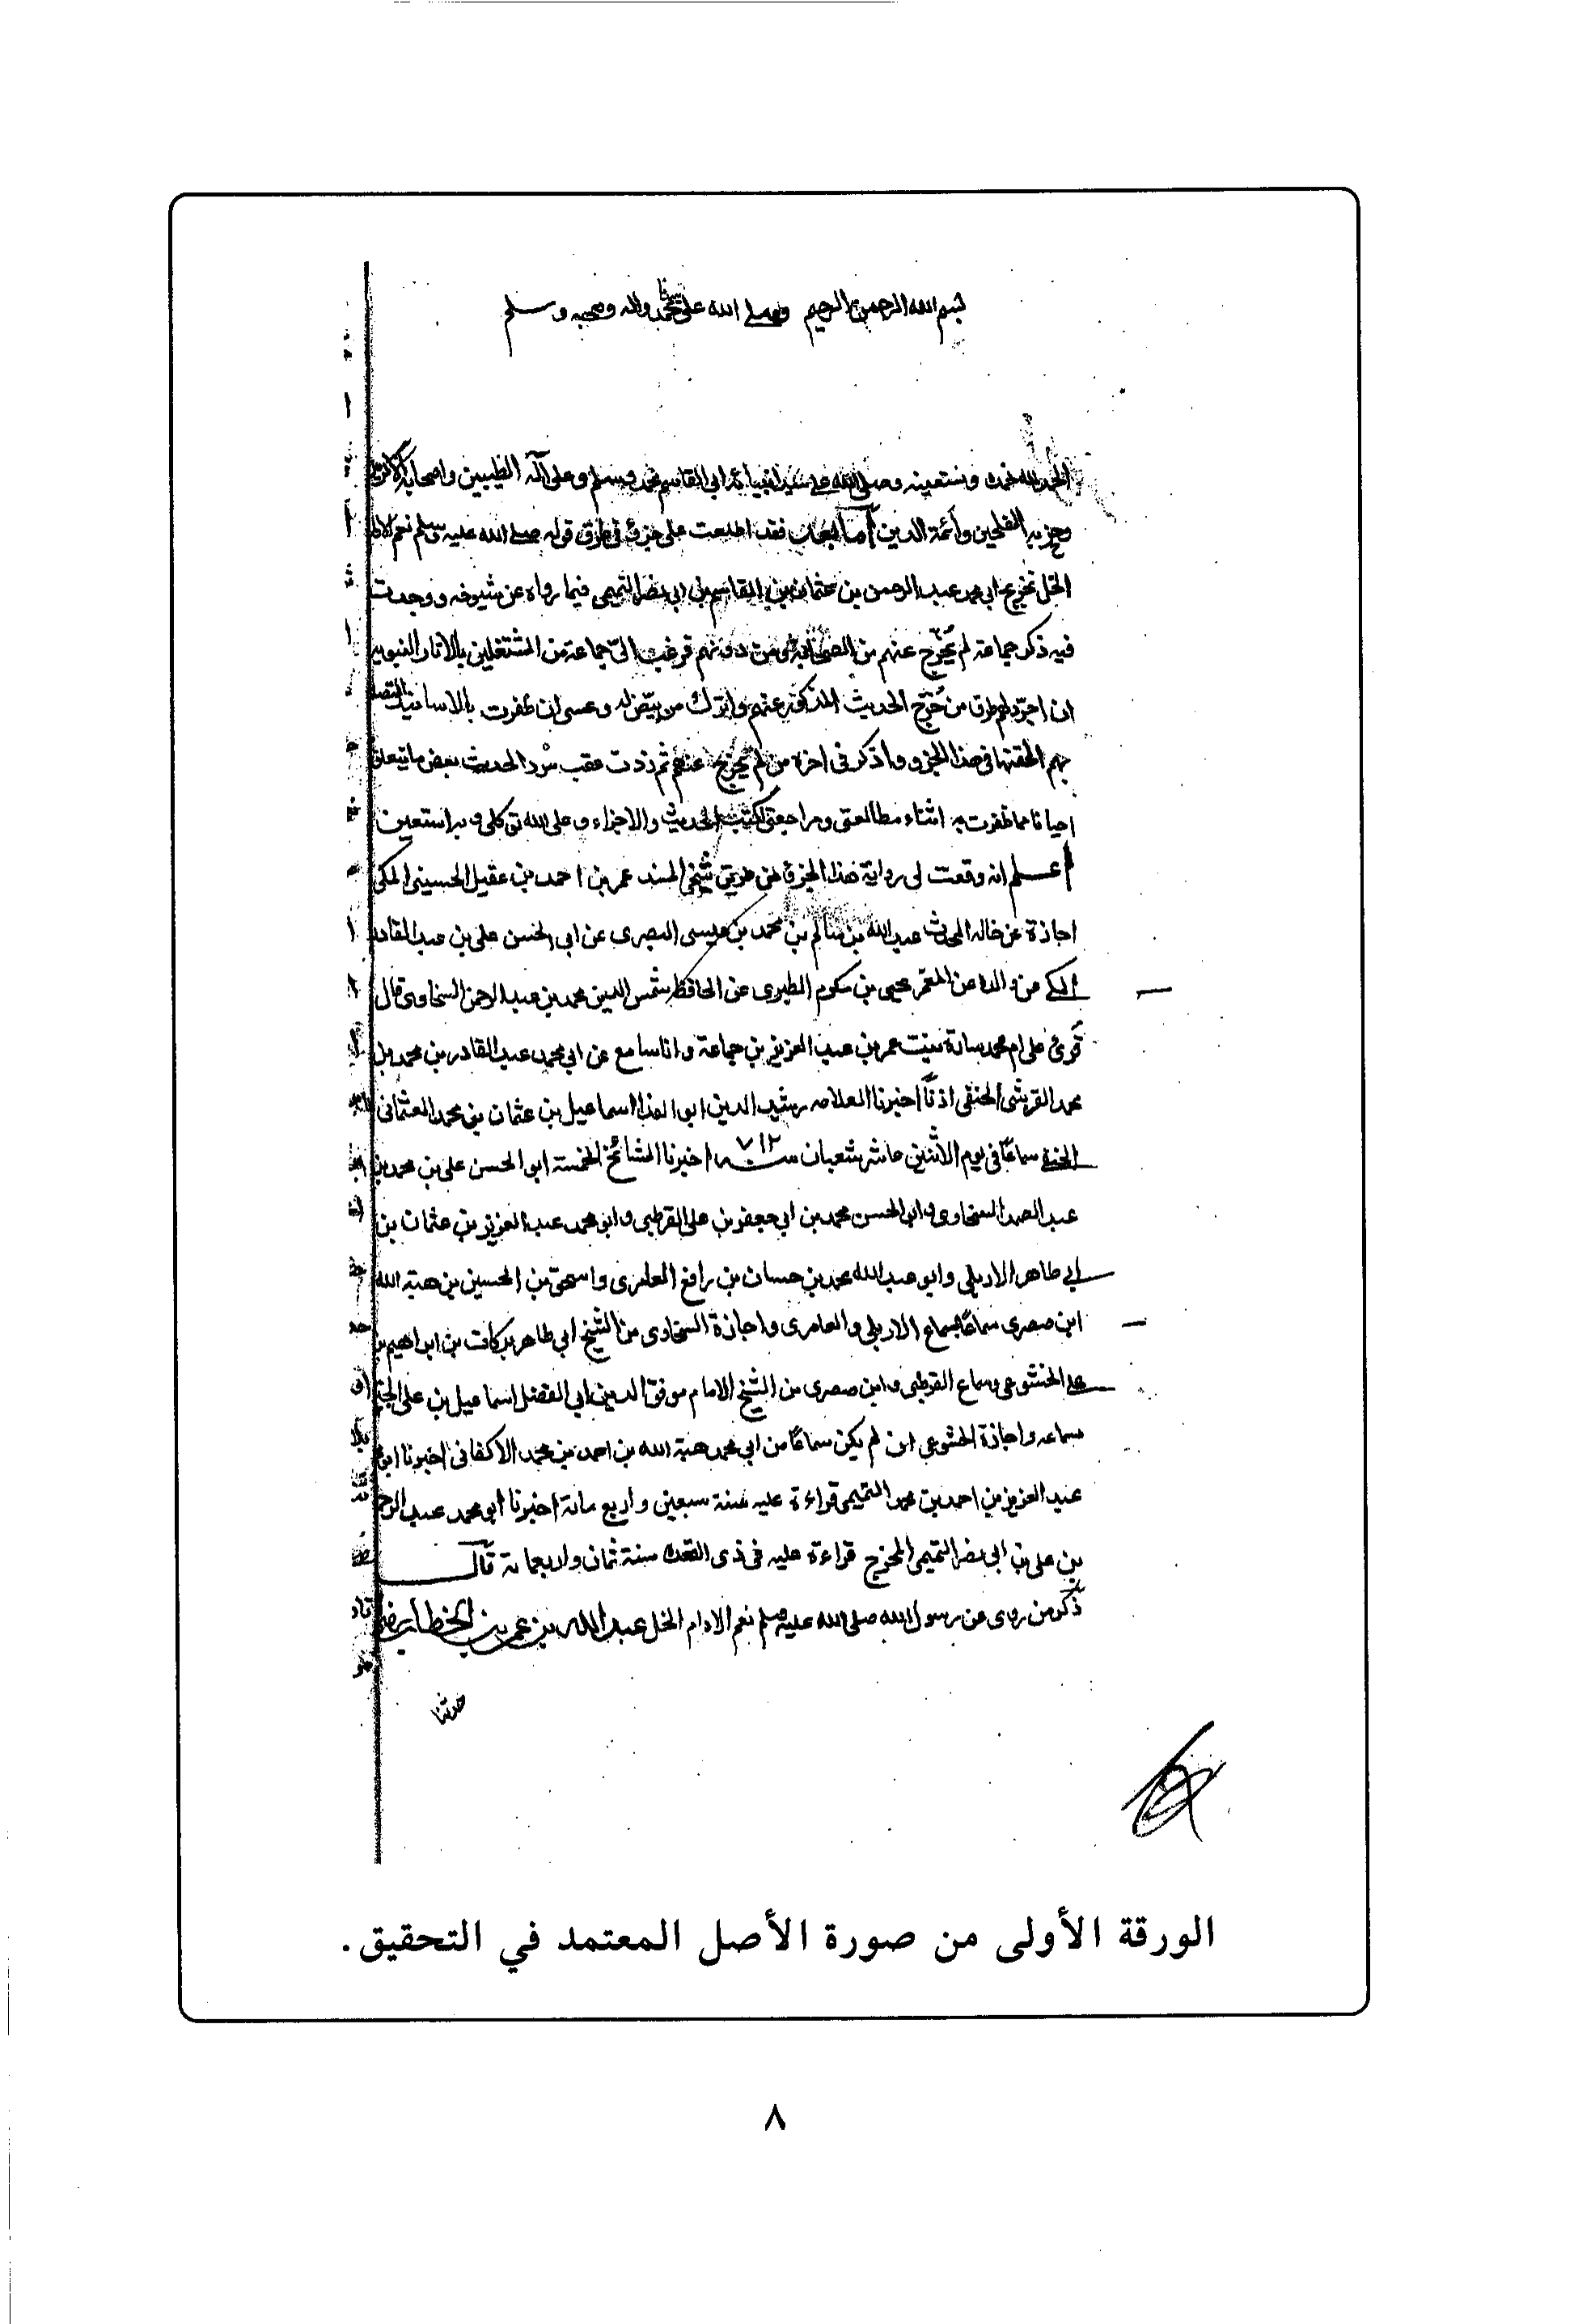 بسم الله الرحمن الرحيم وصلى الله على سيدنا محمد واله وصحبه وسلم
الحمد لله نحمده ونستعينه وصلى الله على سيد انبيائه ابى القاسم محمد وسلم وعلى آله الطيبين واصحابه
وحزبه المفلحين وأئمة الدين أما بعد فقد اطلعت على جزؤ فى طرق قوله صلى الله عليه وسلم نعم الادام
الخل تخريج ابى محمد عبد الرحمن بن عثمان بن القاسم بن ابى نصر التميمى فيما رواه عن شيوخه ووجدت
فيه ذكر جماعة لم يُخرّج عنهم من الصحابة ومن دونهم فرغب الىّ جماعة من المشتغلين بالاثار النبويه
ان اجرد لهم طرق من خُرّج الحديث المذكور عنهم واترك من بيّض له وعسى ان ظفرت بالاسانيد المتصلة
بهم الحقتها فى هذا الجزؤ واذكر فى اخره من لم يخرج عنهم ثم زدت عقب سرد الحديث بعض ما يتعلق
احيانا مما ظفرت به اثناء مطالعتى ومراجعتى لكتب الحديث والاجزاء وعلى الله توكلى وبه استعين
أعلم انه وقعت لى رواية هذا الجزؤ من طريق شيخى المسند عمر بن احمد بن عقيل الحسينى المكى
اجازة عن خاله المحدث عبد الله بن سالم بن محمد بن عيسى البصرى عن ابى الحسن على بن عبد القادر
المكى عن والده عن المعمّر يحيى بن مكرم الطبرى عن الحافظ شمس الدين محمد بن عبد الرحمن السخاوى قال
قرئ على ام محمد سارة بنت عمر بن عبد العزيز بن جماعة وانا سامع عن ابى محمد عبد القادر بن محمد بن
محمد القرشى الحنفى اذنًا اخبرنا العلامه رشيد الدين ابو الفدا اسماعيل بن عثمان بن محمد العثمانى
الحنفى سماعًا فى يوم الاثنين عاشر شعبان سنة ٧١٢ اخبرنا المشائخ الخمسة ابو الحسن على بن محمد بن
عبد الصمد السخاوى وابو الحسن محمد بن ابى جعفر بن على القرطبى وابو محمد عبد العزيز بن عثمان بن
ابى طاهر الاربلى وابو عبد الله محمد بن حسان بن رافع العامرى واسحق بن الحسين بن هبة الله
ابن صصرى سماعًا بسماع الاربلى والعامرى واجازة السخاوى من الشيخ ابى طاهر بركات بن ابراهيم بن
على الخشوعى وسماع القرطبى وابن صصرى من الشيخ الامام موفق الدين ابى الفضل اسماعيل بن على
بسماعه واجازة الخشوعى ان لم يكن سماعًا من ابى محمد هبة الله بن احمد بن محمد الاكفانى اخبرنا ابو محمد
عبد العزيز بن احمد بن محمد التميمى قراءة عليه سنة سبعين واربع مائة اخبرنا ابو محمد عبد الرحمن
بن على بن ابى نصر التميمى المخرج قراءة عليه فى ذى القعدة سنة ثمان واربعمائة قال
ذكر من روى عن رسول الله صلى الله عليه وسلم نعم الادام الخل عبد الله بن عمر بن الخطاب
حدثنا
الورقة الأولى من صورة الأصل المعتمد في التحقيق.
٨